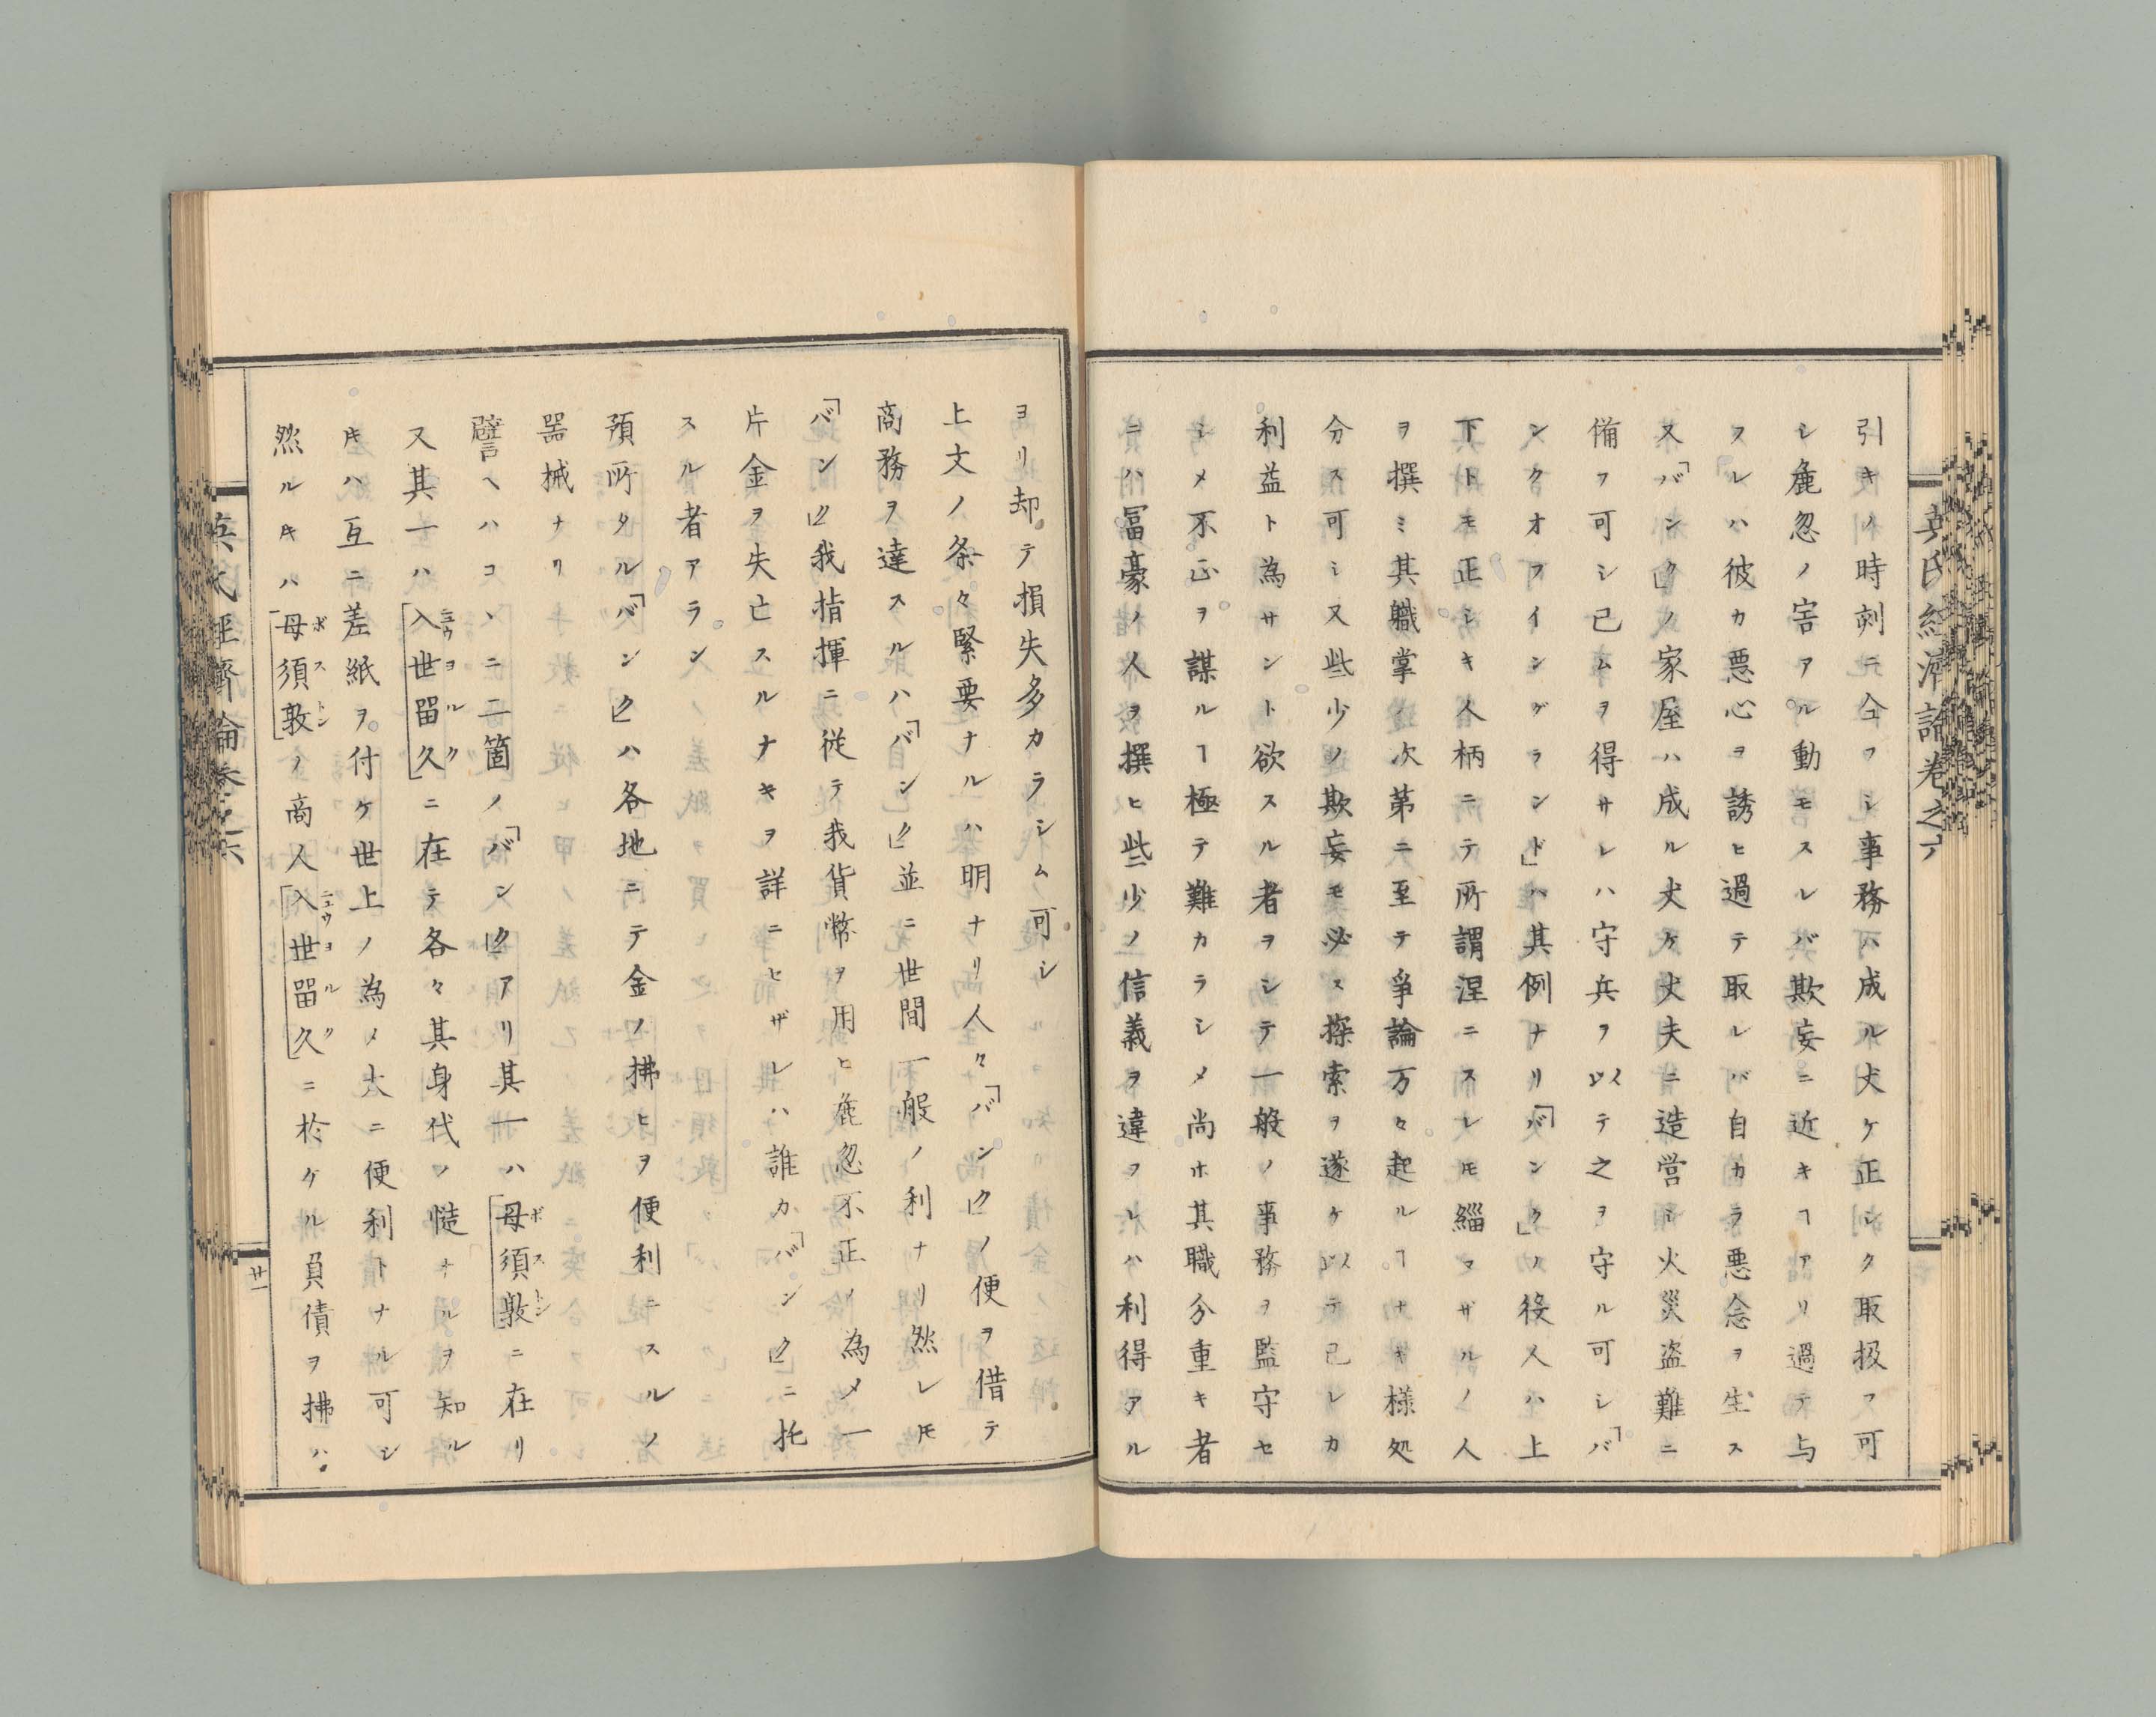 引キノ時刻ニ合フシ事務ハ成ル犬ケ正シク取扱フ可
シ麁忽ノ害アル動モスレバ欺妄ニ近キヿアリ過テ与
フレハ彼カ悪心ヲ誘ヒ過テ取レバ自カラ悪念ヲ生ス
又「バンク」ノ家屋ハ成ル丈ケ丈夫ニ造営シ火災盗難ニ
備フ可シ已ムヲ得サレハ守兵ヲ以テ之ヲ守ル可シ「バ
ンクオフインググランド」ハ其例ナリ「バンク」ノ役人ハ上
下トモ正シキ人柄ニテ所謂涅ニスレ𪜈緇マザルノ人
ヲ撰ミ其職掌ノ次第ニ至テ爭論万々起ルヿナキ様処
分ス可シ又些少ノ欺妄モ必ス探索ヲ遂ケ以テ己レカ
利益ト為サント欲スル者ヲシテ一般ノ事務ヲ監守セ
シメ不正ヲ謀ルヿ極テ難カラシメ尚ホ其職分重キ者
ニハ冨豪ノ人ヲ撰ヒ些少ノ信義ヲ違フレハ利得アル
ヨリ却テ損失多カラシム可シ
上文ノ条々緊要ナルハ明ナリ人々「バンク」ノ便ヲ借テ
商務ヲ達スルハ「バンク」並ニ世間一般ノ利ナリ然レ𪜈
「バンク」我指揮ニ従テ我貨幣ヲ用ヒ麁忽不正ノ為メ一
片金ヲ失亡スルナキヲ詳ニセザレハ誰カ「バンク」ニ托
スル者アラン
預所タル「バンク」ハ各地ニテ金ノ拂ヒヲ便利ニスルノ
噐械ナリ
譬ヘハコヽニ二箇ノ「バンク」アリ其一ハ「母須敦」ニ在リ
又其一ハ「入世留久」ニ在テ各々其身代ノ慥ナルヲ知ル
𪜈ハ互ニ差紙ヲ付ケ世上ノ為メ大ニ便利トナル可シ
然ル𪜈ハ「母須敦」ノ商人「入世留久」ニ於ケル負債ヲ拂ハ
廿一